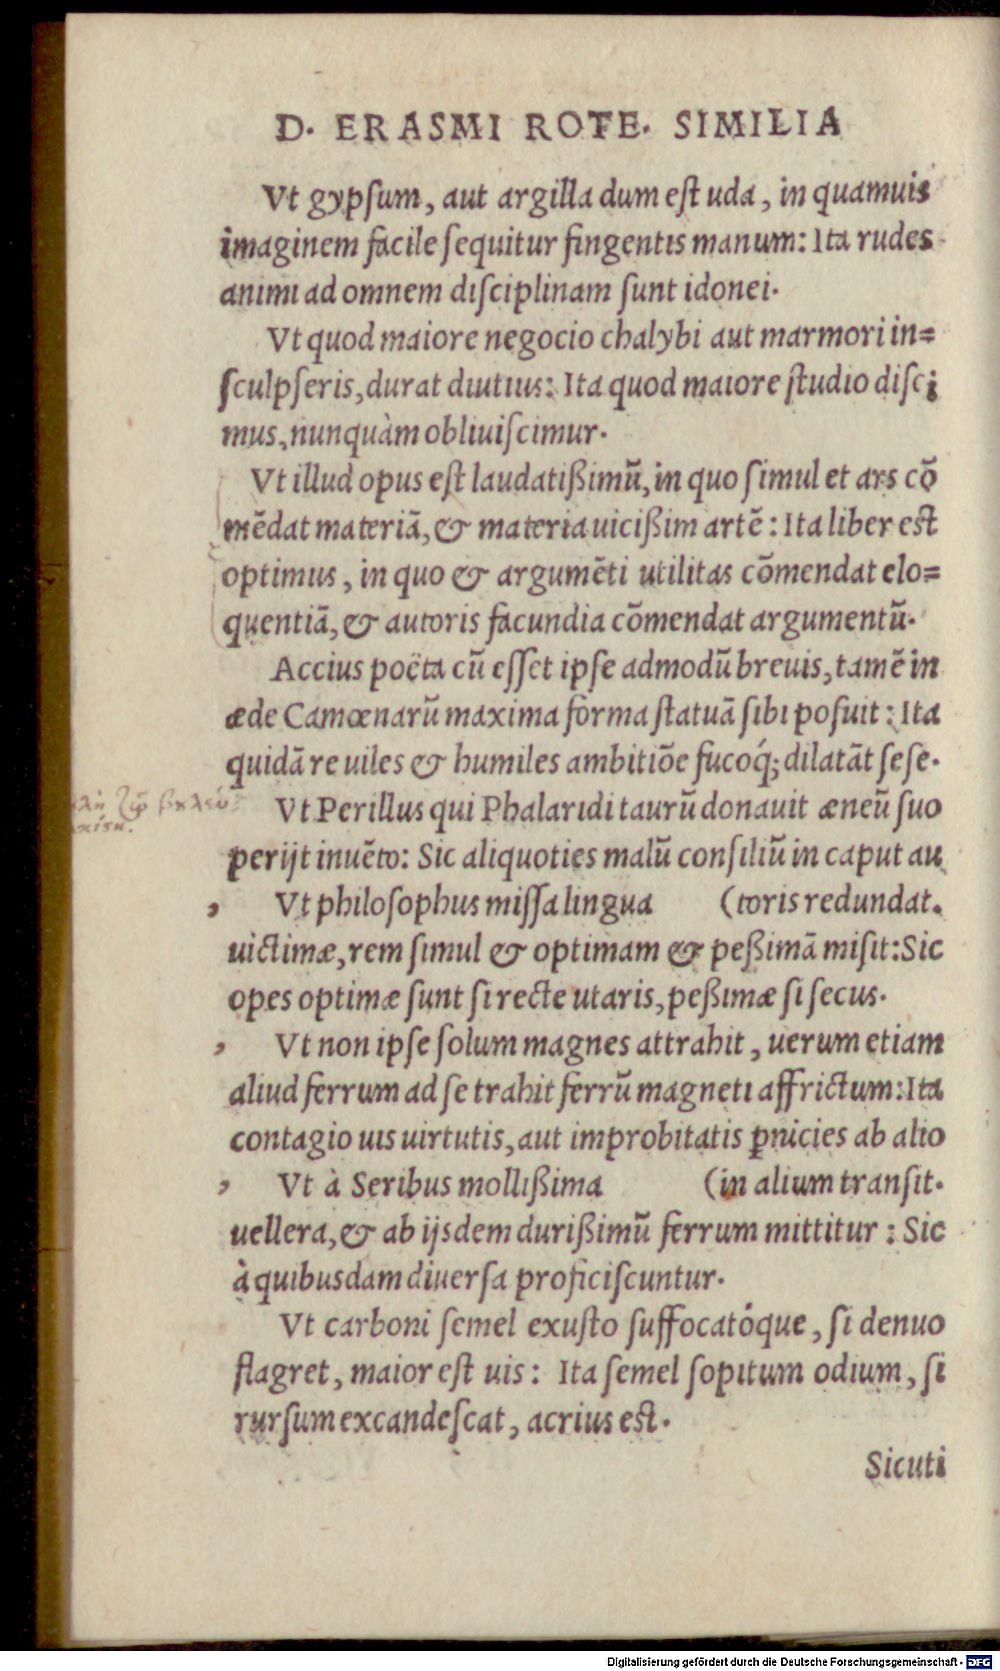 D. ERASMI ROTE. SIMILIA
Vt gypſum, aut argilla dum eſt uda, in quamuis
imaginem facile ſequitur fingentis manum: Ita rudes
animi ad omnem diſciplinam ſunt idonei.
Vt quod maiore negocio chalybi aut marmori in=
ſculpſeris, durat diutius: Ita quod maiore ſtudio diſci
mus, nunquàm obliuiſcimur.
Vt illud opus eſt laudatißimũ, in quo ſimul et ars cõ
mẽdat materiã, & materia uicißim artẽ: Ita liber eſt
optimus, in quo & argumẽti utilitas cõmendat elo=
quentiã, & autoris facundia cõmendat argumentũ.
Accius poëta cũ eſſet ipſe admodũ breuis, tamẽ in
æde Camœnarũ maxima forma ſtatuã ſibi poſuit: Ita
quidã re uiles & humiles ambitiõe fucoq́; dilatãt ſeſe.
Vt Perillus qui Phalaridi taurũ donauit æneũ ſuo
perijt inuẽto: Sic aliquoties malũ conſiliũ in caput au
, Vt philoſophus miſſa lingua (toris redundat.
uictimæ, rem ſimul & optimam & peßimã miſit: Sic
opes optimæ ſunt ſi recte utaris, peßimæ ſi ſecus.
, Vt non ipſe ſolum magnes attrahit, uerum etiam
aliud ferrum ad ſe trahit ferrũ magneti affrictum: Ita
contagio uis uirtutis, aut improbitatis ꝑnicies ab alio
, Vt à Seribus mollißima (in alium tranſit.
uellera, & ab ijsdem durißimũ ferrum mittitur: Sic
à quibusdam diuerſa proficiſcuntur.
Vt carboni ſemel exuſto ſuffocatóque, ſi denuo
flagret, maior eſt uis: Ita ſemel ſopitum odium, ſi
rurſum excandeſcat, acrius eſt.
Sicuti
Digitalisierung gefördert durch die Deutsche Forschungsgemeinschaft - DFG